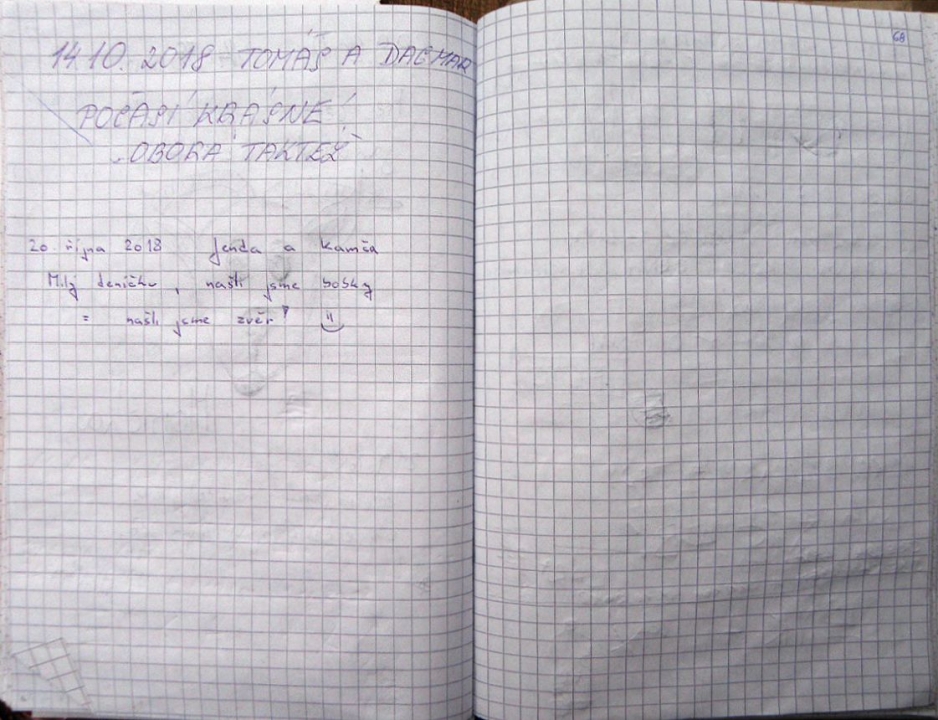 14.10. 2018 TOMÁŠ A DAGMAR
POČASÍ KRÁSNÉ!
OBORA TAKTÉŽ
20. října 2018 Jenda a Kamša
Milý deníčku, našli jsme bobky
= našli jsme zvěř! =)
68